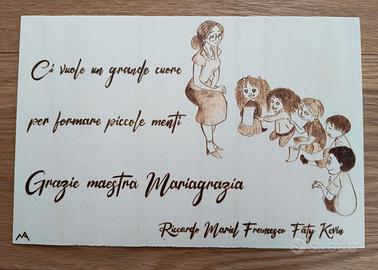 Ci vuole un grande cuore
per formare piccole menti
Grazie maestra Mariagrazia
Riccardo Mariel Francesco Faty Kevin